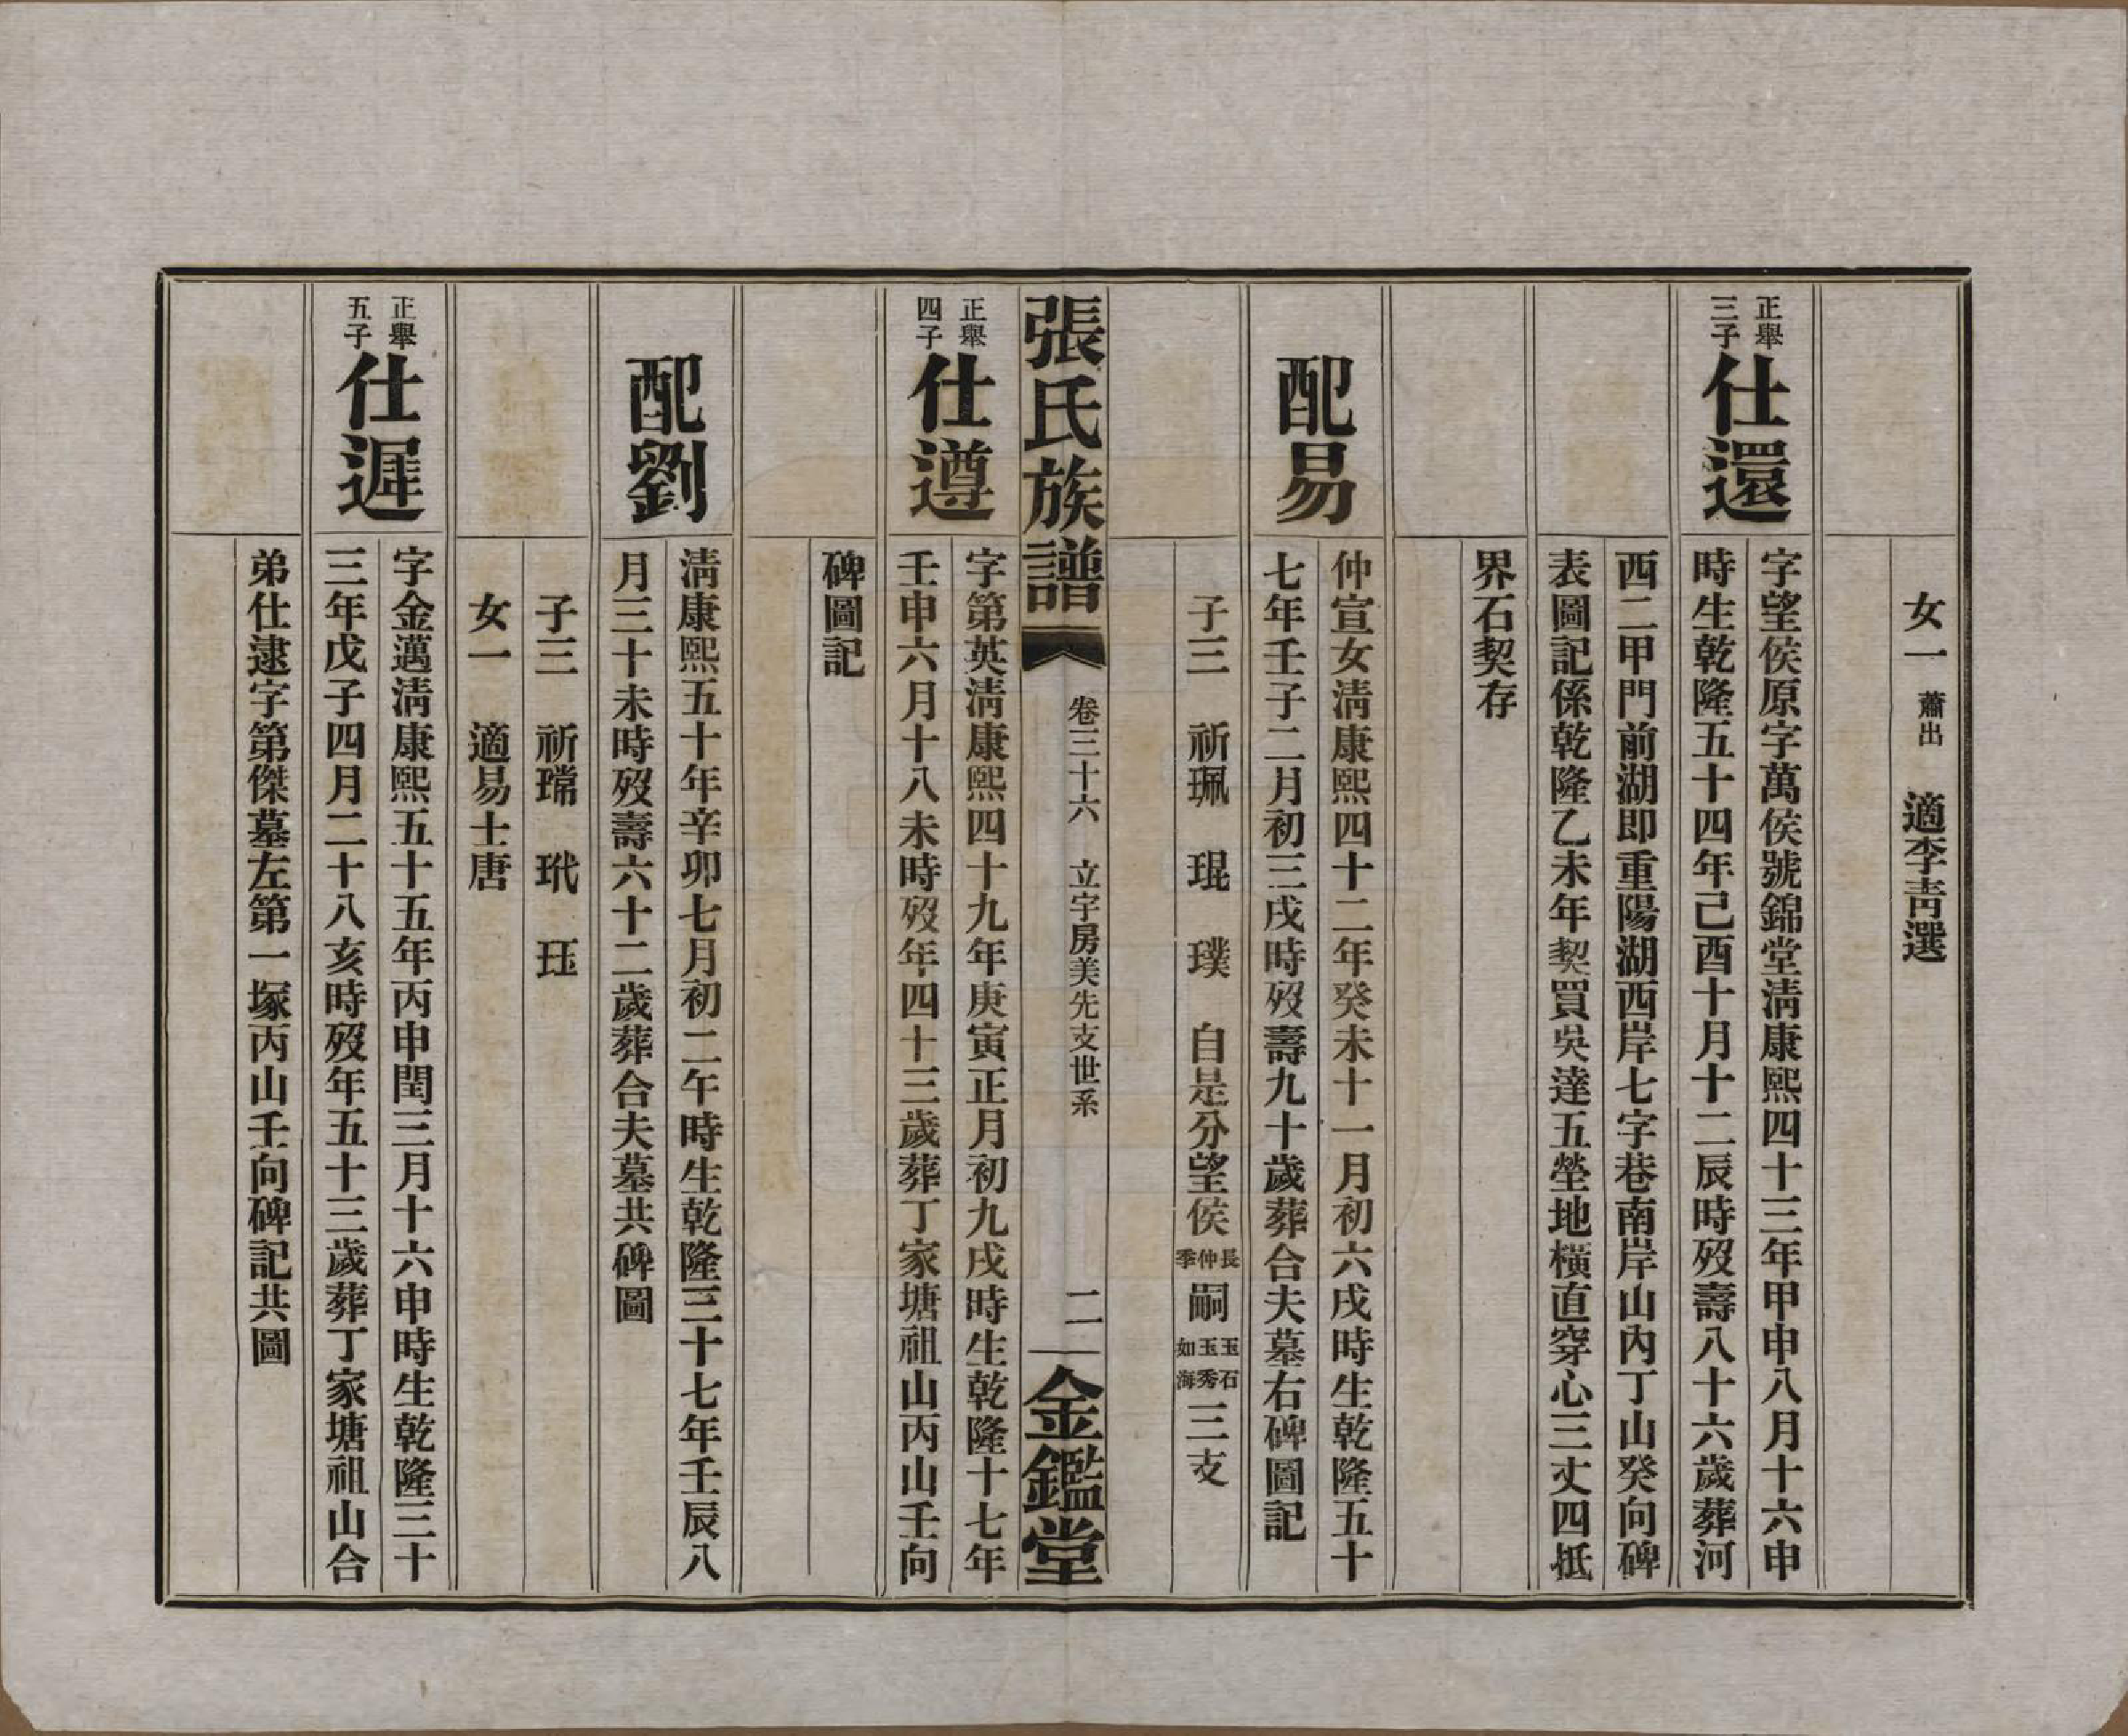 女一 蕭出 適李靑選
正舉
三子
仕還
字望侯原字萬侯號錦堂淸康熙四十三年甲申八月十六申
時生乾隆五十四年己酉十月十二辰時歿壽八十六歲葬河
西二甲門前湖即重陽湖西岸七字巷南岸山內丁山癸向碑
表圖記係乾隆乙未年契買吳達五塋地橫直穿心三丈四抵
界石契存
配易
仲宣女淸康熙四十二年癸未十一月初六戌時生乾隆五十
七年壬子二月初三戌時歿壽九十歲葬合夫墓右碑圖記
子三 祈珮 琨 璞 自是分望侯長仲季嗣玉石玉秀如海三支
張氏族譜
卷三十六 立宇房美先支世系
二
金鑑堂
正舉
四子
仕遵
字第英淸康熙四十九年庚寅正月初九戌時生乾隆十七年
壬申六月十八未時歿年四十三歲葬丁家塘祖山丙山壬向
碑圖記
配劉
淸康熙五十年辛卯七月初二午時生乾隆三十七年壬辰八
月三十未時歿壽六十二歲葬合夫墓共碑圖
子三 祈瑞 玳 珏
女一 適易士唐
正舉
五子
仕遲
字金邁淸康熙五十五年丙申閏三月十六申時生乾隆三十
三年戊子四月二十八亥時歿年五十三歲葬丁家塘祖山合
弟仕逮字第傑墓左第一塚丙山壬向碑記共圖